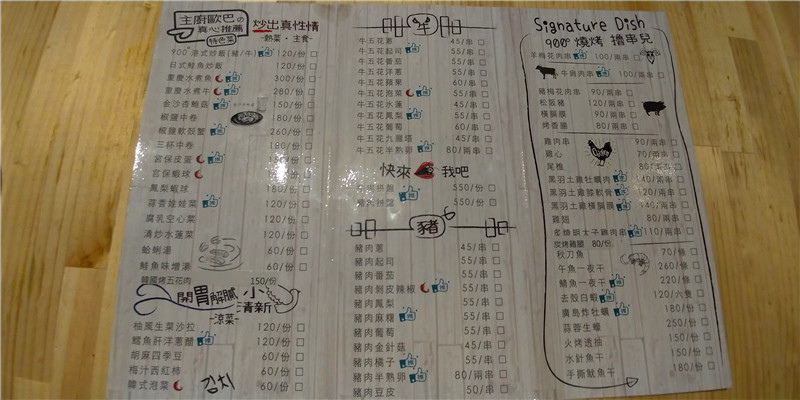 主廚歐巴の
真心推薦
特色菜
炒出真性情
-熱菜·主食-
900°港式炒飯(豬/牛) 120/份
日式鮭魚炒飯 120/份
重慶水煮魚 300/份
重慶水煮牛 280/份
金沙杏鮑菇 150/份
椒鹽中卷 180/份
椒鹽軟殼蟹 260/份
三杯中卷 180/份
宮保皮蛋 150/份
宮保蝦球
鳳梨蝦球 180/份
蒜香娃娃菜
腐乳空心菜 120/份
清炒水蓮菜 120/份
蛤蜊湯 60/份
鮭魚味增湯 60/份
韓國烤五花肉 150/份
開胃解膩 小清新
-涼菜-
柚風生菜沙拉 120/份
鱈魚肝洋蔥醋 120/份
胡麻四季豆 60/份
梅汁西紅柿 60/份
韓式泡菜 60/份
김치
牛
牛五花蔥 45/串
牛五花起司 55/串
牛五花番茄 55/串
牛五花洋蔥 55/串
牛五花蘋果 60/串
牛五花泡菜 55/串
牛五花水蓮 45/串
牛五花鳳梨 55/串
牛五花葡萄 60/串
牛五花九層塔 45/串
牛五花半熟卵 80/兩串
快來 我吧
550/份
550/份
豬
豬肉蔥 45/串
豬肉起司 55/串
豬肉番茄 55/串
豬肉剝皮辣椒 55/串
豬肉鳳梨 55/串
豬肉麻糬 55/串
豬肉葡萄 55/串
豬肉金針菇 45/串
豬肉橘子 55/串
豬肉半熟卵 80/兩串
豬肉豆皮 50/串
Signature Dish
900° 燒烤 擼串兒
羊梅花肉串 100/兩串
牛肩肉串 100/兩串
豬梅花肉串 90/兩串
松阪豬 120/兩串
橫膈膜 90/兩串
烤香腸 80/兩串
雞肉串 90/兩串
雞心 70/兩串
尾椎 80/兩串
黑羽土雞牡蠣肉 140/兩串
黑羽土雞膝軟骨 120/兩串
黑羽土雞橫膈膜 140/兩串
雞翅 80/兩串
老爺明太子雞肉串 110/兩串
炭烤雞腿 80/份
秋刀魚 70/條
午魚一夜干 260/條
鯖魚一夜干 220/條
去殼白蝦 120/六隻
廣島炸牡蠣 180/份
蒜蓉生蠔 250/份
火烤透抽 150/份
水針魚干
手撕魷魚干